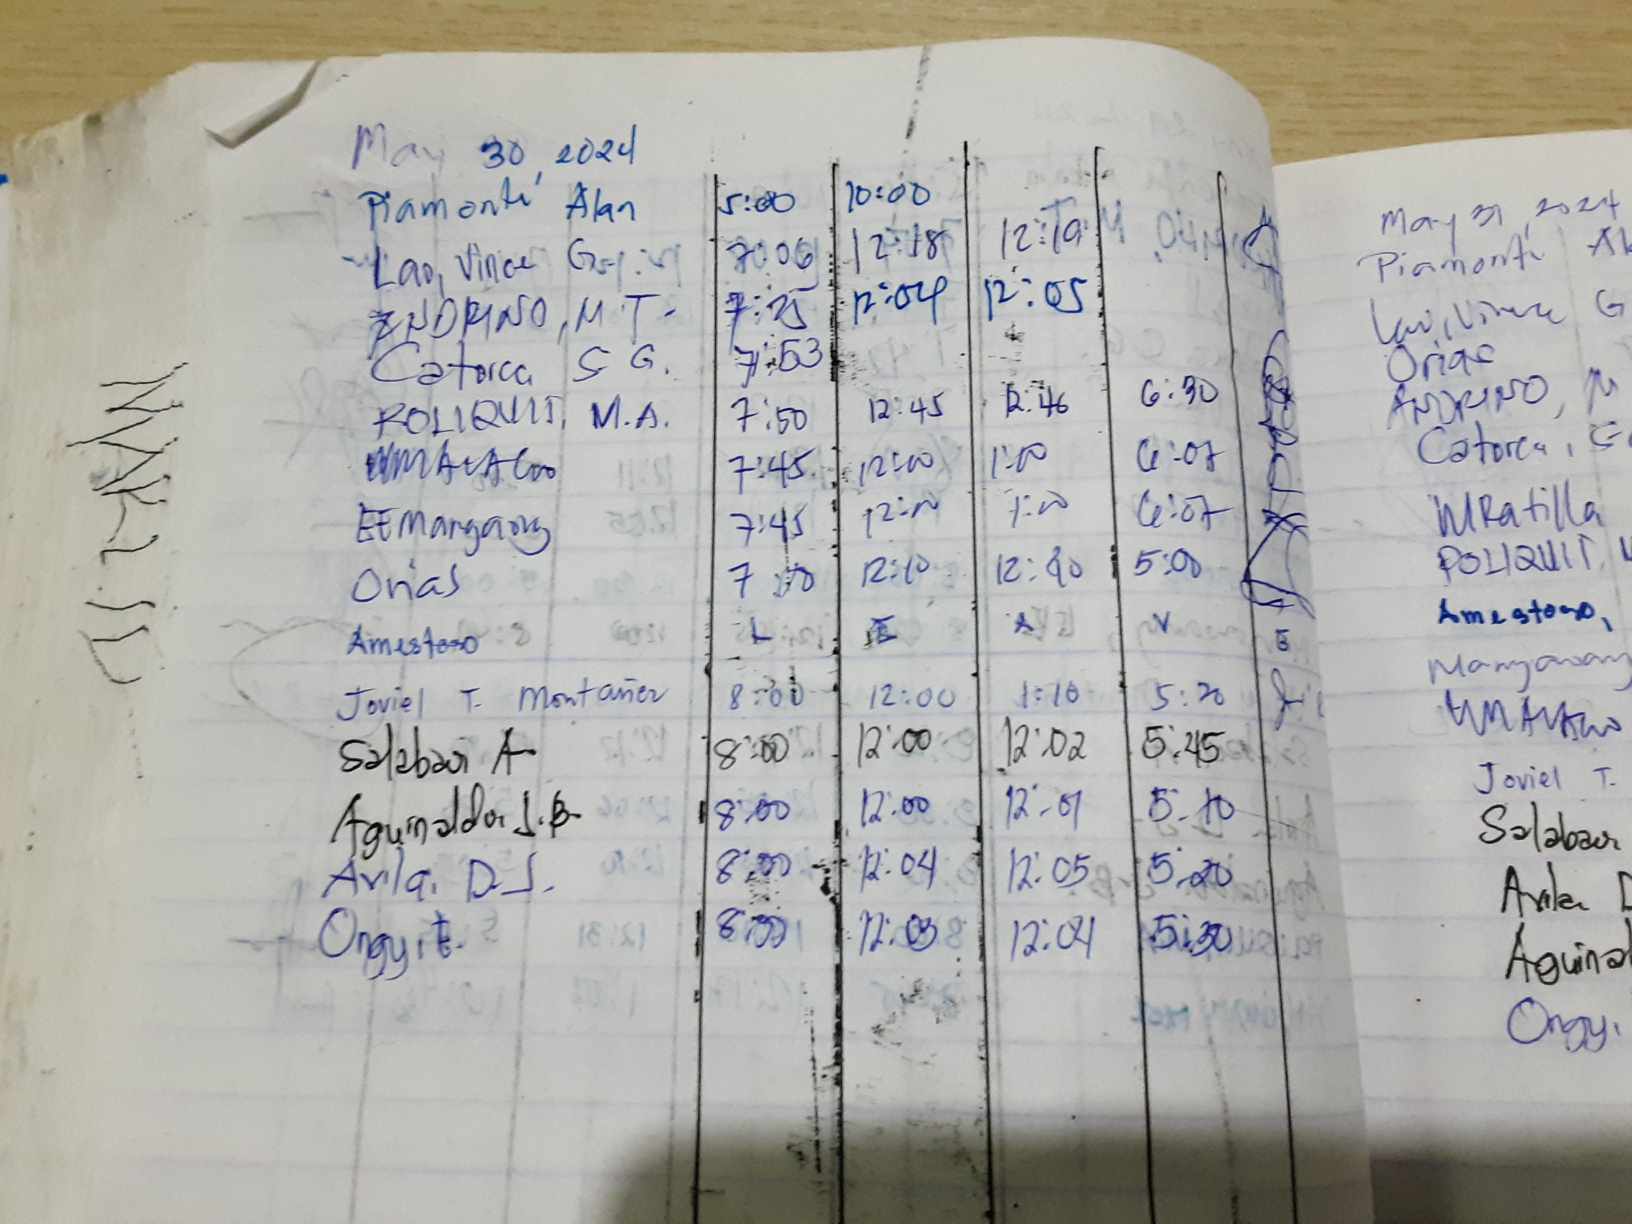 May 30, 2024
Piamonte Alan 5:00 10:00
Lao, Vince G. 7:06 12:18 12:19
M.T. 7:25 12:04 12:05
Catorca S G. 7:53
POLIQUIT, M.A. 7:50 12:45 12:46 6:30
7:45 12:00 1:00 6:07
EEMangaong 7:45 12:00 1:00 6:07
Orias 12:10 5:00
Amestoso L E A V E
Joviel T. Montañez 8:00 12:00 1:10 5:20
Salabao A 8:00 12:00 12:02 5:45
Aguinaldo, J.B. 8:00 12:00 12:01 5:10
Avila, D.J. 8:00 12:04 12:05 5:20
12:03 12:04 5:30
May 31, 2024
Piamonte
Lao, Vince G
Orias
ANDRINO, M
Catorca, G
Ratilla
POLIQUIT,
Amestoso,
Joviel T.
Salabao
Avila D
Aguinal